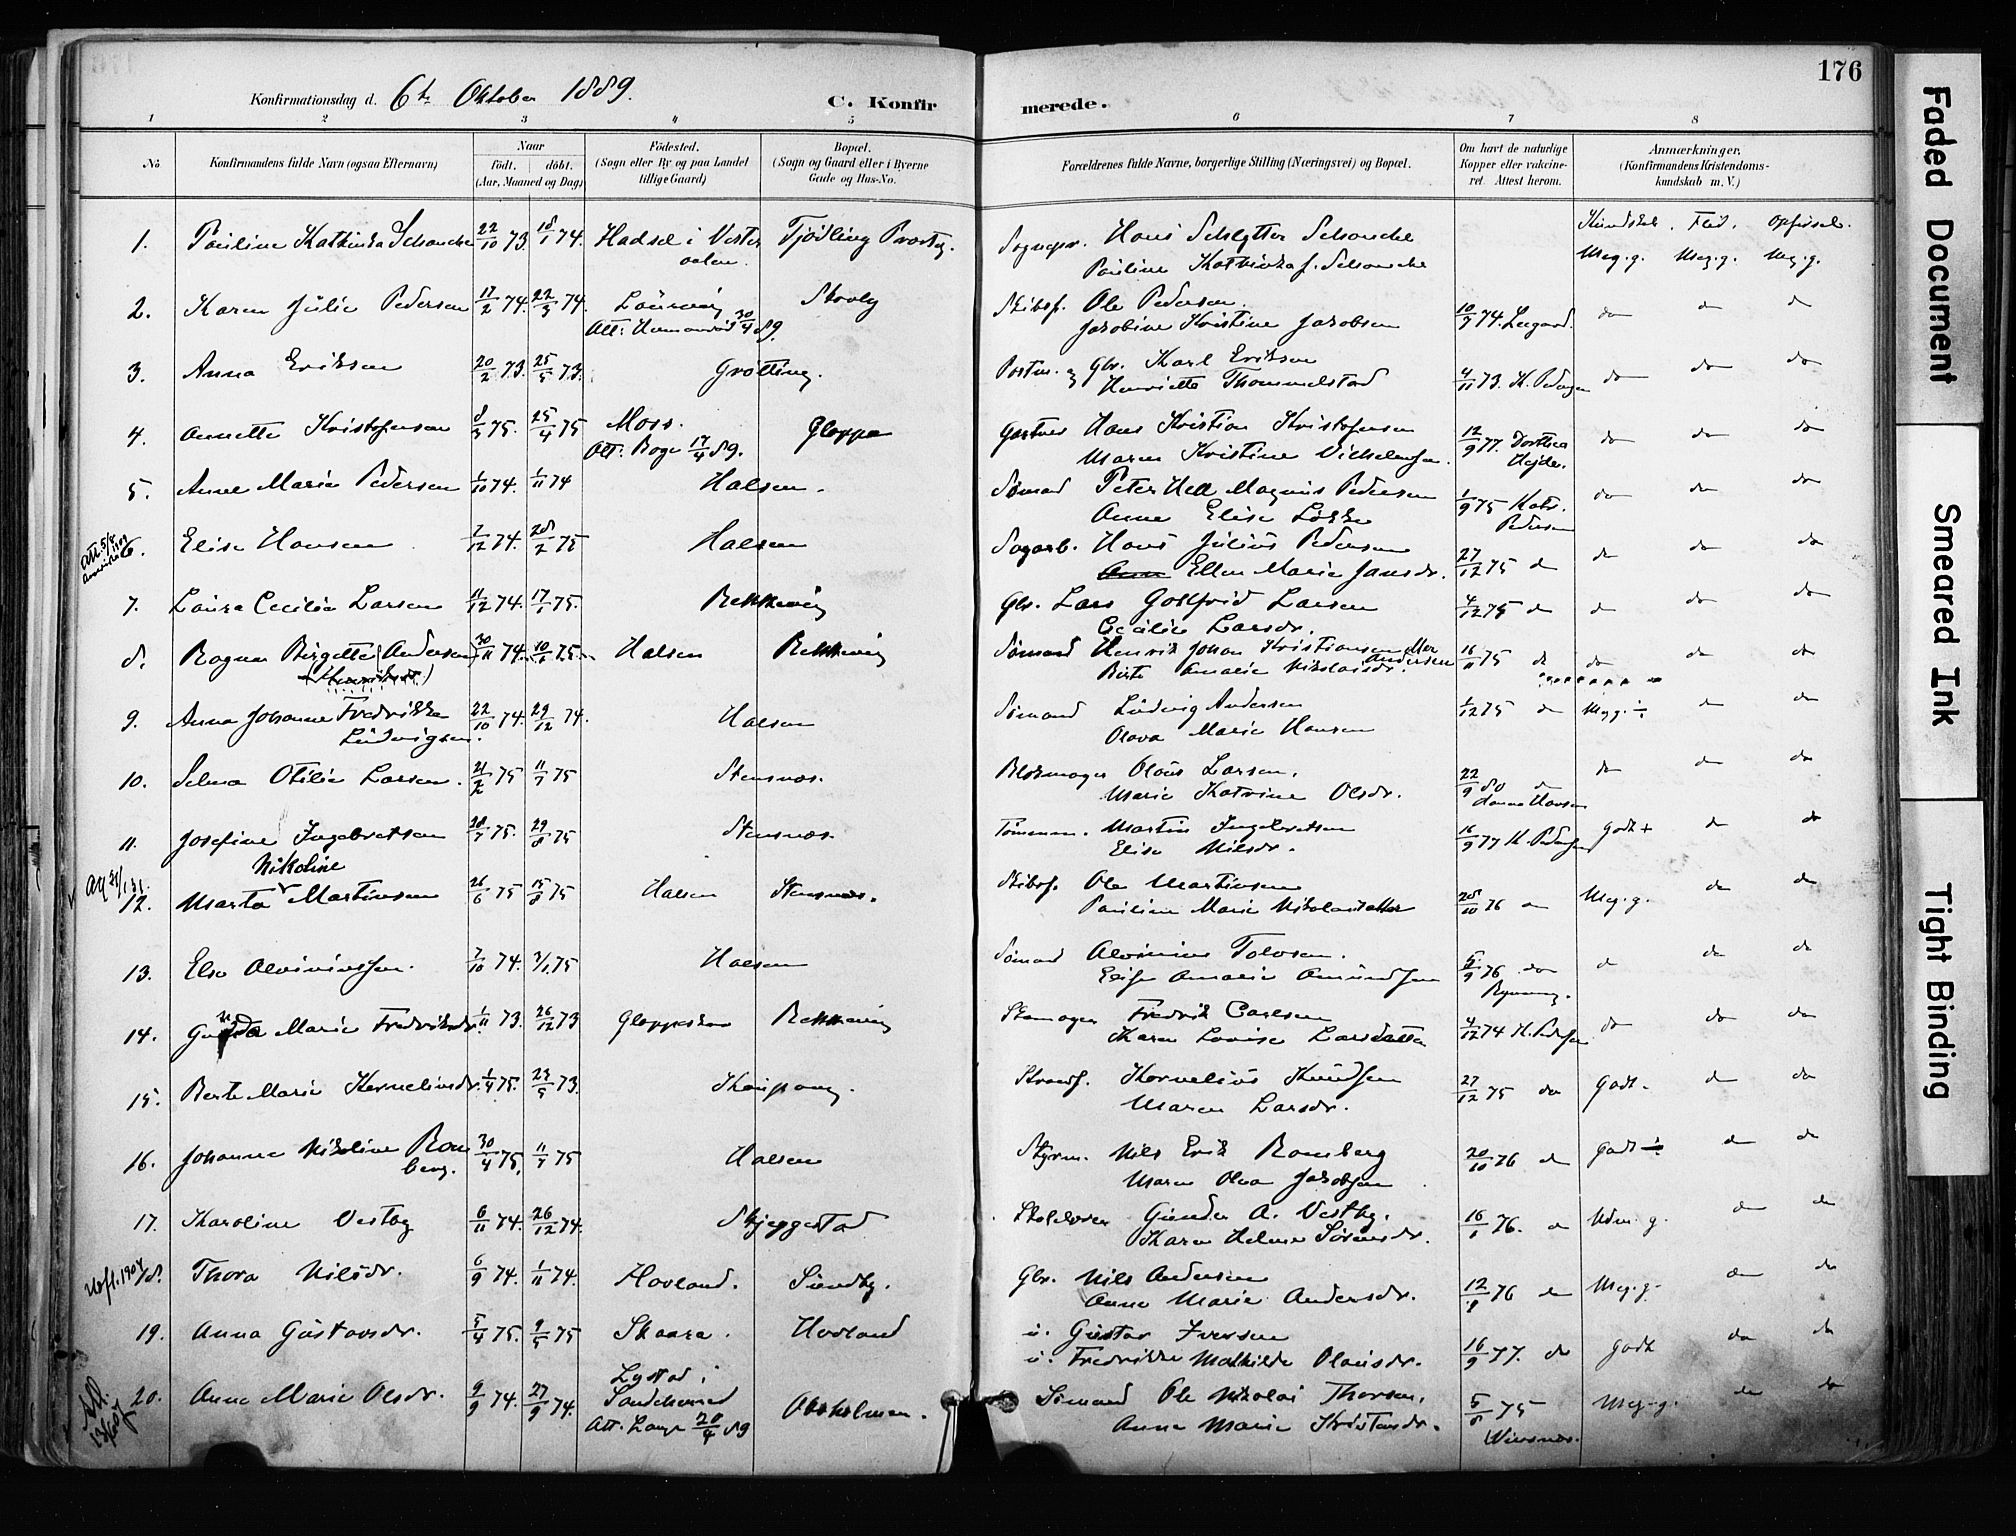 176
Konfirmationsdag d. 6te Oktober 1889. C. Konfirmerede.
1 2 3 4 5 6 7 8
No. Konfirmandens fulde Navn (ogsaa Efternavn) Naar født. døbt. (Aar, Maaned og Dag) Fødested. (Sogn eller By og paa Landet tillige Gaard) Bopæl. (Sogn og Gaard eller i Byerne Gade og Hus-No. Forældrenes fulde Navne, borgerlige Stilling (Næringsvei) og Bopæl. Om havt de naturlige Kopper eller vaccineret. Attest herom. Anmærkninger. (Konfirmandens Kristendomskundskab m. V.)
Kundskab. Flid. Opførsel.
1. Pauline Kathinka Schanche 22/10 73. 18/1 74. Hadsel i Vesteraalen. Tjødling Prestg. Sognepr. Hans Schlytter Schanche Meg. g. Meg. g. Meg. g.
Pauline Kathinka f. Schanche
2. Karen Julie Pedersen 17/2 74. 22/3 74. Laurvig Skovly Skibsf. Ole Pedersen. 10/7 74. do do d
Att: 30/4 89. Jakobine Kristine Jakobsen
3. Anna Eriksen 20/2 73. 25/5 73. Grøtting. Postm. og Gbr. Karl Eriksen 4/11 73. K. Pedersen do do do
Henriette Thommelstad
4. Annette Kristofersen 8/3 75. 25/4 75 Moss. Gloppe Gartner Hans Kristian Kristofersen 12/9 77. Dorthea Hejde. do do do
Att: Boge 17/4 89. Maren Kristine Vilhelmsen.
5. Anne Marie Pedersen 1/10 74. 1/11 74 Halsen. Sømand Peter Magnus Pedersen 1/9 75 Pedersen do do do
Anne Elise Løkke
6. Elise Hansen 7/12 74. 28/2 75 Halsen Hans Julius Pedersen 27/12 75 do do do do
Ellen Marie Jansdr.
7. Laura Cecilie Larsen 11/12 74. 17/1 75. Rekkevig Gbr. Lars Gottfrid Larsen 4/12 75 do do do do
Cecilie Larsdr.
8. Ragna Birgette (Andersen) 30/11 74. 10/1 75. Halsen Rekkevig Sømand Henrik Johan Kristiansen 16/11 75 do do do do
(Henriksdr.) Birte Amalie Nikolaisdr. Andersen
9. Anna Johanne Fredrikke 22/10 74. 29/12 74. Halsen Sømand Ludvig Andersen 1/12 75 do Meg. g. ÷ do do
Ludvigsen. Olava Marie Hansen
10. Selma Otilie Larsen. 21/2 75 11/7 75 Stensnæs. Blokmager Olaus Larsen. 22/9 80 do do do do
Marie Katrine Olsdr. Hansen
11. Josefine Ingebretsen 28/7 75. 29/8 75 Stensnæs. Tømmerm. Martin Ingebretsen 16/9 77 K. Pedersen Godt + do do
Elise Nilsdr.
Nikoline
12. Marta Martinsen 26/6 75 15/8 75 Halsen Stensnæs. Skibsf. Ole Martinsen 28/10 76 do Meg. g. do do
Pauline Marie Nikolaidatter
13. Else Alvinussen. 7/10 74. 3/1 75 Halsen Sømand Alvinius Tolvsen. 5/9 76 do do do do
Elise Amalie Amundsen
14. Gunda Marie Fredriksdr. 1/11 73. 26/12 73 Gloppeskau Rekkevig Skomager Fredrik Carlsen 4/12 74 K. Pedersen do do do
Karen Lovise Larsdatter
15. Berte Marie Kornelinsdr. 1/4 75. Kaupang. Strandf. Kornelius Knudsen 27/12 75 do Godt. do do
Maren Larsdr.
16. Johanne Nikoline Romberg. 30/4 75. 11/7 75 Halsen Styrm. Nils Erik Romberg 20/10 76 do Godt ÷ do do
Maren Olea Jakobsen
17. Karoline Vestby 6/11 74. 26/12 74. Skjeggestad Gunder A. Vestby. 16/1 76. do Udm. g. do do
Karen Helene Sørensdr.
18. Thora Nilsdr. 6/9 74. 1/11 74. Hovland. Sundby. Gbr. Nils Andersen 12/9 76 do Meg. g. do do
Anne Marie Andersdr.
19. Anna Gustavsdr. 5/4 75. 9/5 75 Skaara. Hovland u. Gustav Iversen 16/9 77. do Godt do do
u. Fredrikke Mathilde Olausdr.
20. Anna Marie Olsdr. 9/9 74. 27/9 74. Lystad i Sandeherred Sømand Ole Nikolai Thorsen, 5/8 75 Meg. g. do do
Att. Lange 20/4 89 Anne Marie Kristensdr.
Faded Document
Smeared Ink
Tight Binding